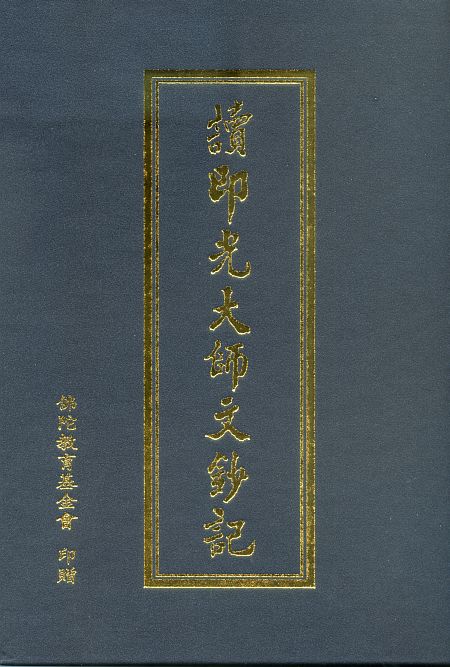 讀印光大師文鈔記
佛陀教育基金會 印贈